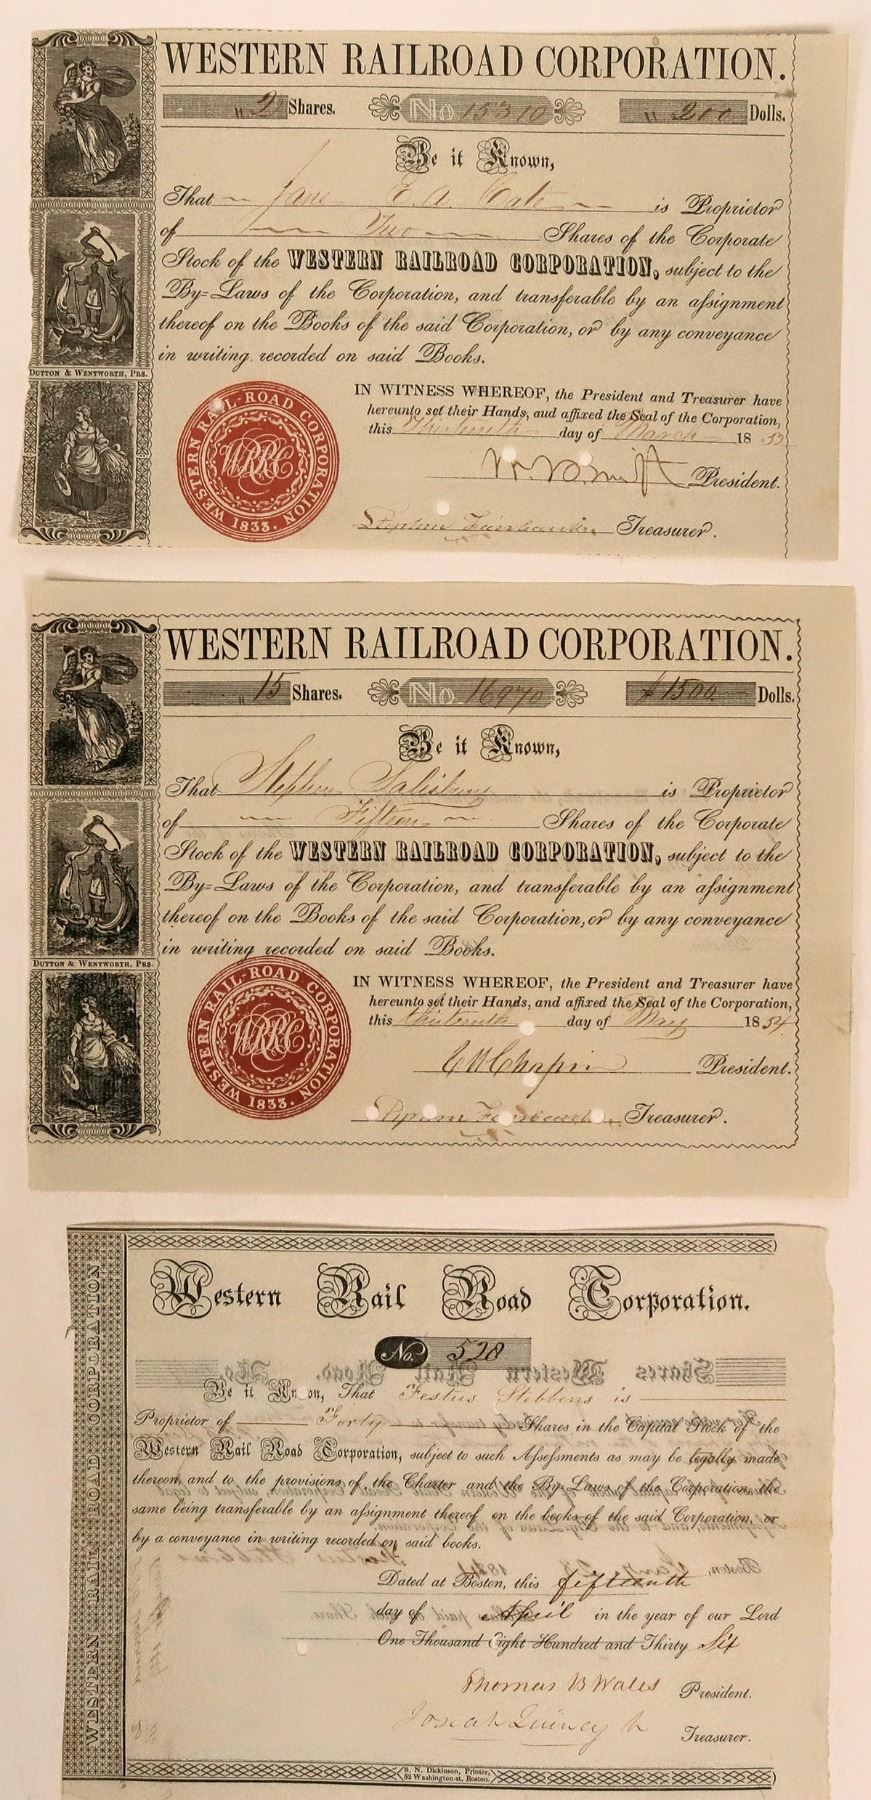 WESTERN RAILROAD CORPORATION.
" 2 Shares. No 15310 " 200 Dolls.
Be it Known,
That Jane E. A. is Proprietor
of Two Shares of the Corporate
Stock of the WESTERN RAILROAD CORPORATION, subject to the
By=Laws of the Corporation, and transferable by an assignment
thereof on the Books of the said Corporation, or by any conveyance
in writing recorded on said Books.
DUTTON & WENTWORTH, PRS.
IN WITNESS WHEREOF, the President and Treasurer have
hereunto set their Hands, and affixed the Seal of the Corporation,
this thirteenth day of March 18
WESTERN RAIL-ROAD CORPORATION
WRRC
1833.
President.
Stephen Fairbanks Treasurer.
WESTERN RAILROAD CORPORATION.
" 15 Shares. No. 16970 $1500 Dolls.
Be it Known,
That Stephen Salisbury is Proprietor
of Fifteen Shares of the Corporate
Stock of the WESTERN RAILROAD CORPORATION, subject to the
By=Laws of the Corporation, and transferable by an assignment
thereof on the Books of the said Corporation, or by any conveyance
in writing recorded on said Books.
DUTTON & WENTWORTH, PRS.
IN WITNESS WHEREOF, the President and Treasurer have
hereunto set their Hands, and affixed the Seal of the Corporation,
this thirteenth day of May 1854
WESTERN RAIL-ROAD CORPORATION
WRRC
1833.
C W Chapin President.
Stephen Fairbanks Treasurer.
WESTERN RAIL ROAD CORPORATION
Western Rail Road Corporation.
No. 528
Be it Known, That Festus Stebbens is
Proprietor of Forty Shares in the Capital Stock of the
Western Rail Road Corporation, subject to such Assessments as may be legally made
thereon, and to the provisions of the Charter and the By-Laws of the Corporation, the
same being transferable by an assignment thereof on the books of the said Corporation, or
by a conveyance in writing recorded on said books.
Dated at Boston, this fifteenth
day of April in the year of our Lord
One Thousand Eight Hundred and Thirty Six
Thomas B Wales President.
Josiah Quincy Jr Treasurer.
S. N. Dickinson, Printer,
52 Washington-st. Boston.